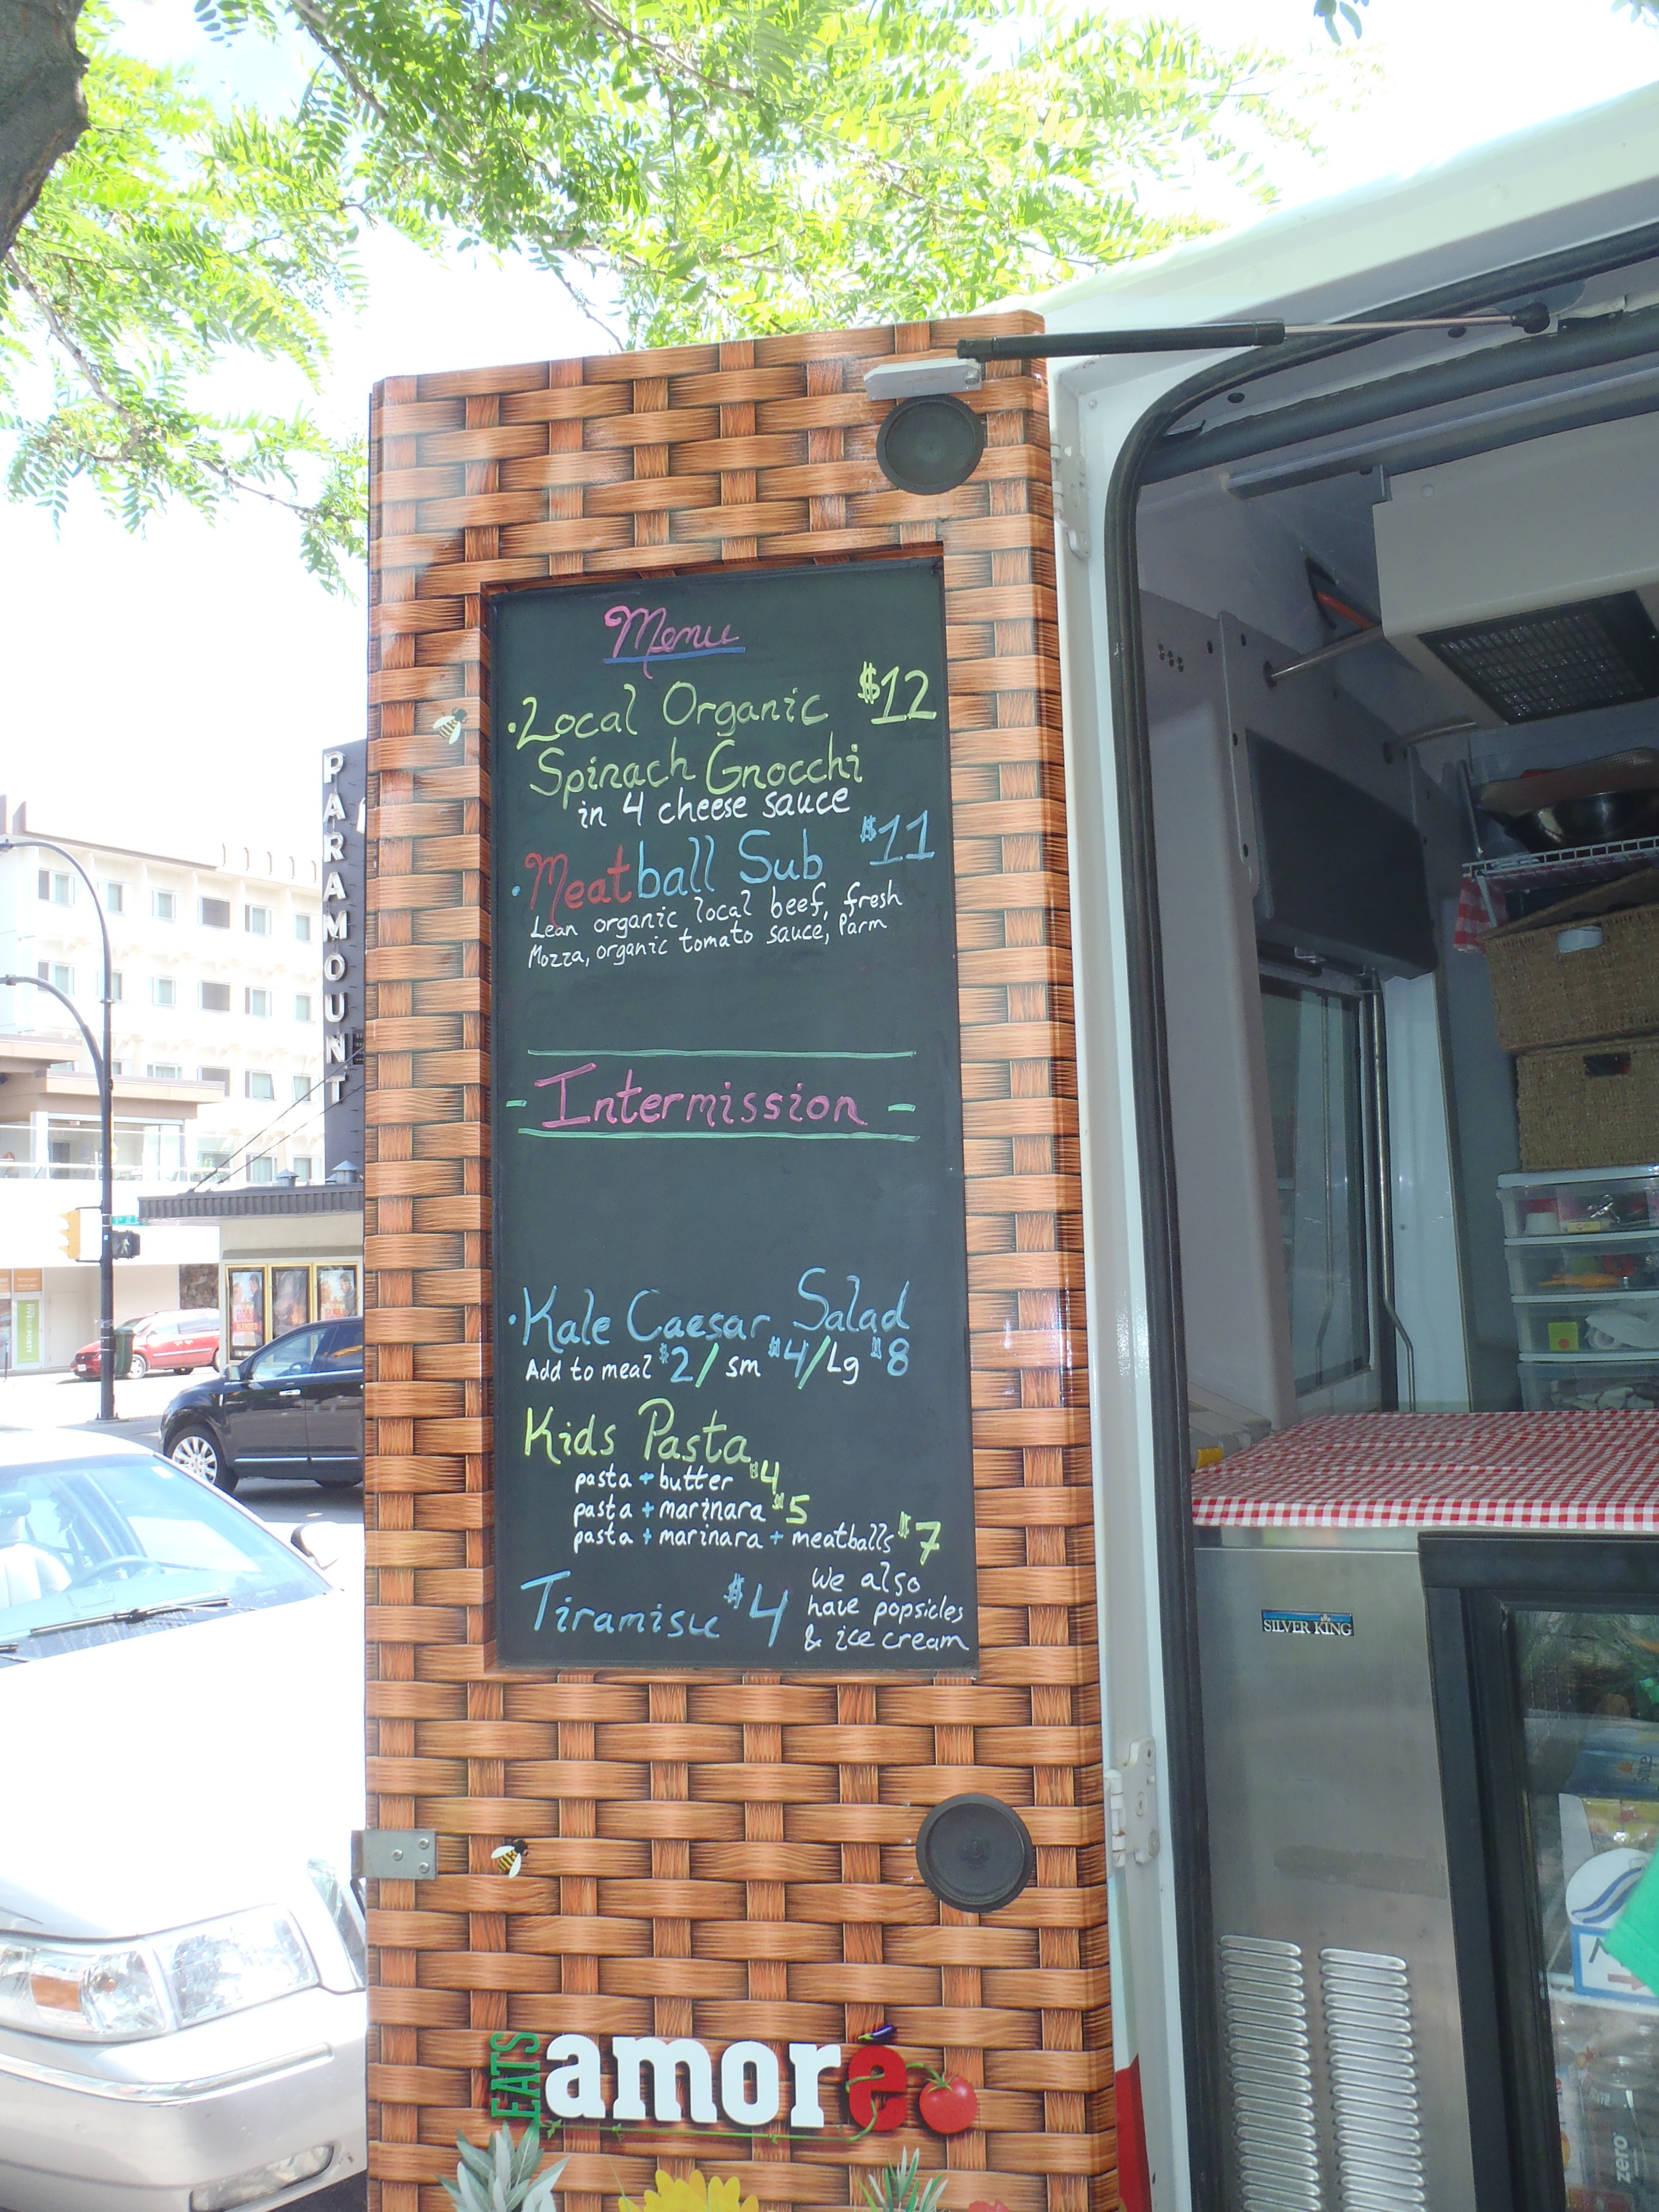 Menu
·Local Organic $12
Spinach Gnocchi
in 4 cheese sauce
·Meatball Sub $11
Lean organic local beef, fresh
Mozza, organic tomato sauce, Parm
- Intermission -
·Kale Caesar Salad
Add to meal $2/sm $4/Lg $8
Kids Pasta
pasta + butter $4
pasta + marinara $5
pasta + marinara + meatballs $7
Tiramisu $4
We also
have popsicles
& ice cream
EATS
amore
PARAMOUNT
SILVER KING
zero